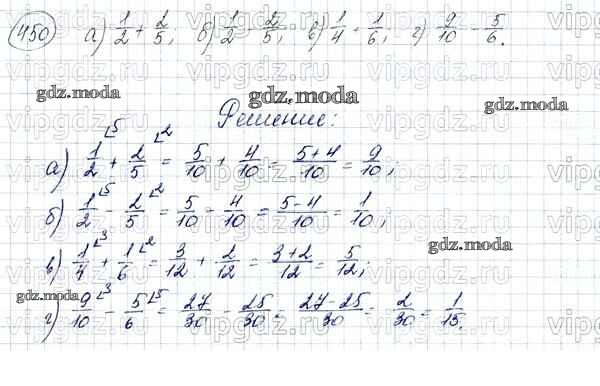 450 а) 1/2 + 2/5; б) 1/2 - 2/5; в) 1/4 + 1/6; г) 9/10 - 5/6.
gdz.moda
gdz.moda
gdz.moda
Решение:
а) 1/2 ⌞5 + 2/5 ⌞2 = 5/10 + 4/10 = 5+4/10 = 9/10;
б) 1/2 ⌞5 - 2/5 ⌞2 = 5/10 - 4/10 = 5-4/10 = 1/10;
в) 1/4 ⌞3 + 1/6 ⌞2 = 3/12 + 2/12 = 3+2/12 = 5/12;
gdz.moda
gdz.moda
г) 9/10 ⌞3 - 5/6 ⌞5 = 27/30 - 25/30 = 27-25/30 = 2/30 = 1/15.
gdz.moda
vipgdz.ru